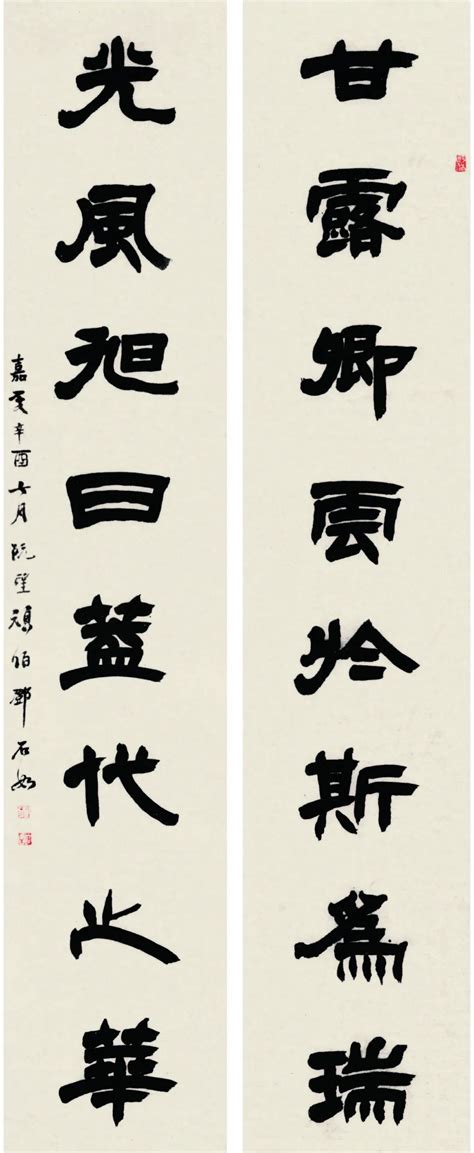 甘露卿雲於斯爲瑞
光風旭日蓋代之華
嘉慶辛酉七月既望頑伯鄧石如